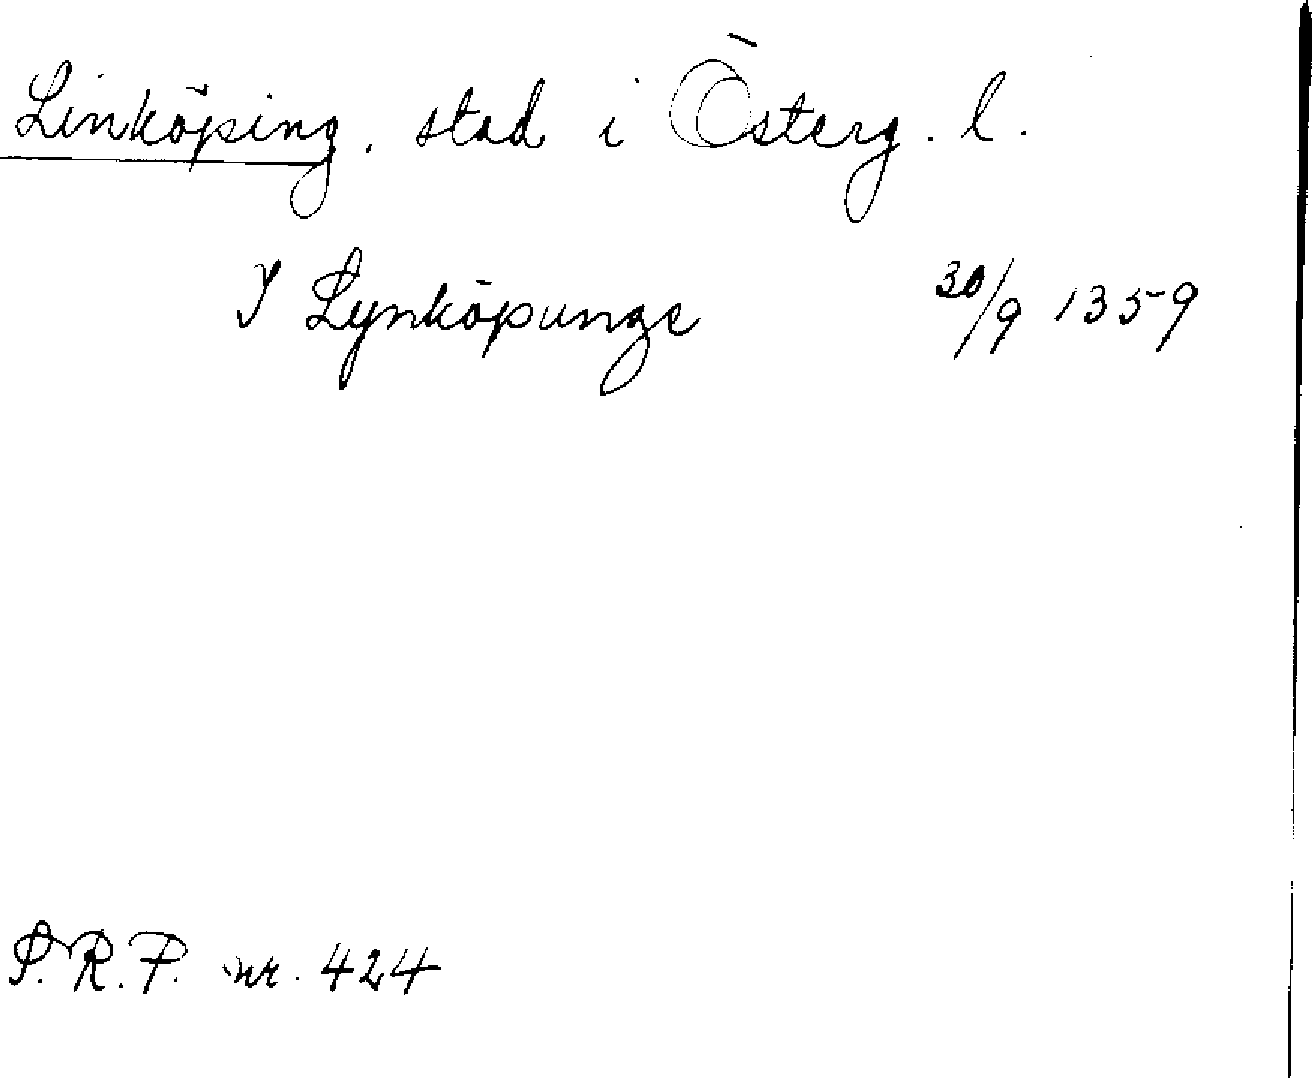 Linköping, stad i Österg. l.
I Lynköpunge 30/9 1359
S.R.P. nr. 424